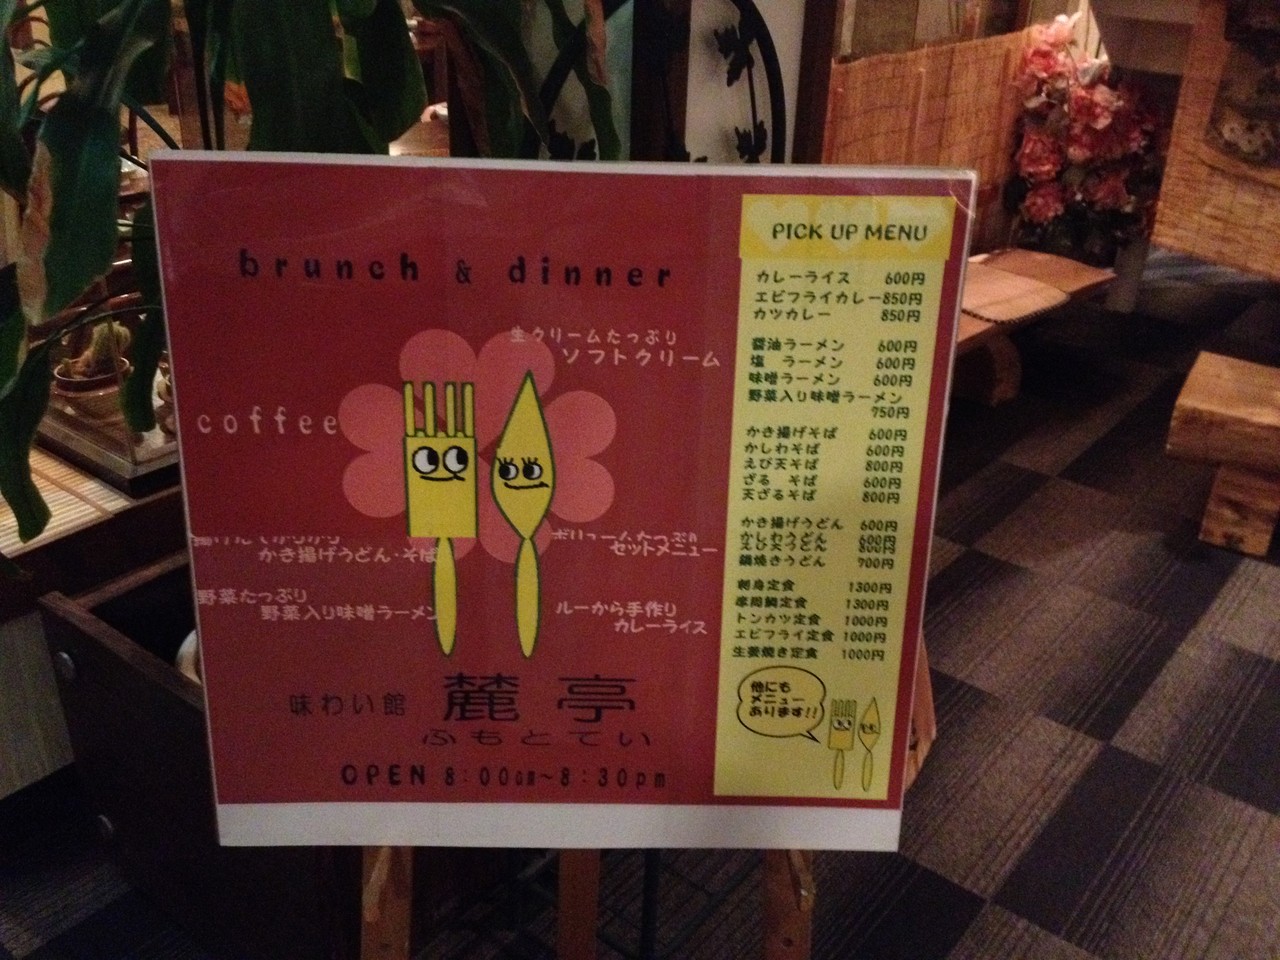 brunch & dinner
生クリームたっぷり
ソフトクリーム
coffee
かき揚げうどん・そば
野菜たっぷり
野菜入り味噌ラーメン
ボリュームたっぷり
セットメニュー
ルーから手作り
カレーライス
味わい館 麓亭
ふもとてい
OPEN 8:00am~8:30pm
PICK UP MENU
カレーライス 600円
エビフライカレー850円
カツカレー 850円
醤油ラーメン 600円
塩 ラーメン 600円
味噌ラーメン 600円
野菜入り味噌ラーメン
750円
かき揚げそば 600円
かしわそば 600円
えび天そば 800円
ざる そば 600円
天ざるそば 800円
かき揚げうどん 600円
かしわうどん 600円
えび天うどん 800円
鍋焼きうどん 700円
刺身定食 1300円
摩周鯛定食 1300円
トンカツ定食 1000円
エビフライ定食 1000円
生姜焼き定食 1000円
他にも
メニュー
あります!!